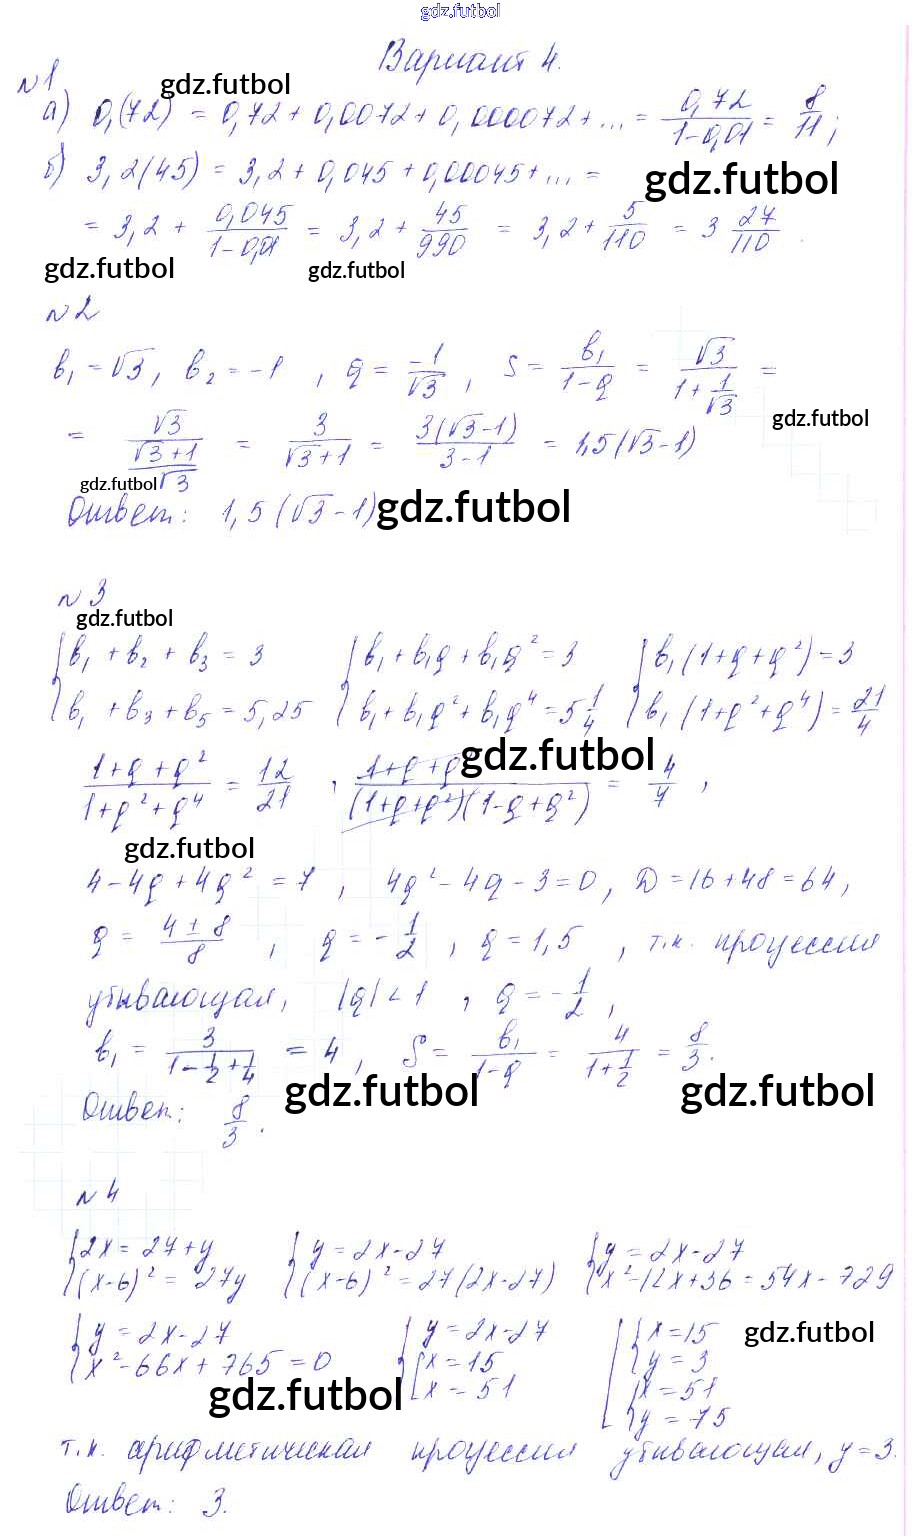 gdz.futbol
Вариант 4.
№1
gdz.futbol
а) 0,(72) = 0,72 + 0,0072 + 0,000072 + ... = 0,72/(1-0,01) = 8/11;
б) 3,2(45) = 3,2 + 0,045 + 0,00045 + ... =
gdz.futbol
= 3,2 + 0,045/(1-0,01) = 3,2 + 45/990 = 3,2 + 5/110 = 3 27/110.
gdz.futbol
gdz.futbol
№2
b₁ = √3, b₂ = -1, q = -1/√3, S = b₁/(1-q) = √3/(1+1/√3) =
gdz.futbol
= √3/((√3+1)/√3) = 3/(√3+1) = 3(√3-1)/(3-1) = 1,5(√3-1)
gdz.futbol
Ответ: 1,5(√3-1)
gdz.futbol
№3
gdz.futbol
{b₁ + b₂ + b₃ = 3 {b₁ + b₁q + b₁q² = 3 {b₁(1+q+q²) = 3
{b₁ + b₃ + b₅ = 5,25 {b₁ + b₁q² + b₁q⁴ = 5 1/4 {b₁(1+q²+q⁴) = 21/4
gdz.futbol
(1+q+q²)/(1+q²+q⁴) = 12/21, (1+q+q²)/((1+q+q²)(1-q+q²)) = 4/7,
gdz.futbol
4-4q+4q² = 7, 4q²-4q-3=0, D=16+48=64,
q = (4±8)/8, q = -1/2, q = 1,5, т.к. прогрессия
убывающая, |q|<1, q = -1/2,
b₁ = 3/(1-1/2+1/4) = 4, S = b₁/(1-q) = 4/(1+1/2) = 8/3.
gdz.futbol
gdz.futbol
Ответ: 8/3.
№4
{2x = 27+y {y = 2x-27 {y = 2x-27
{(x-6)² = 27y {(x-6)² = 27(2x-27) {x²-12x+36 = 54x-729
{y = 2x-27 {y = 2x-27 [{x=15
gdz.futbol
{x²-66x+765=0 {[x=15 {y=3
[x=51 {x=51
gdz.futbol
{y=75
т.к. арифметическая прогрессия убывающая, y=3.
Ответ: 3.